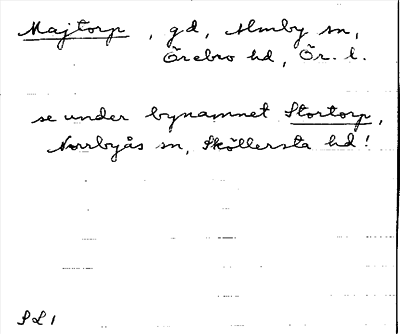 Majtorp, gd, Almby sn,
Örebro hd, Ör. l.
se under bynamnet Stortorp,
Norrbyås sn, Sköllersta hd!
SL1